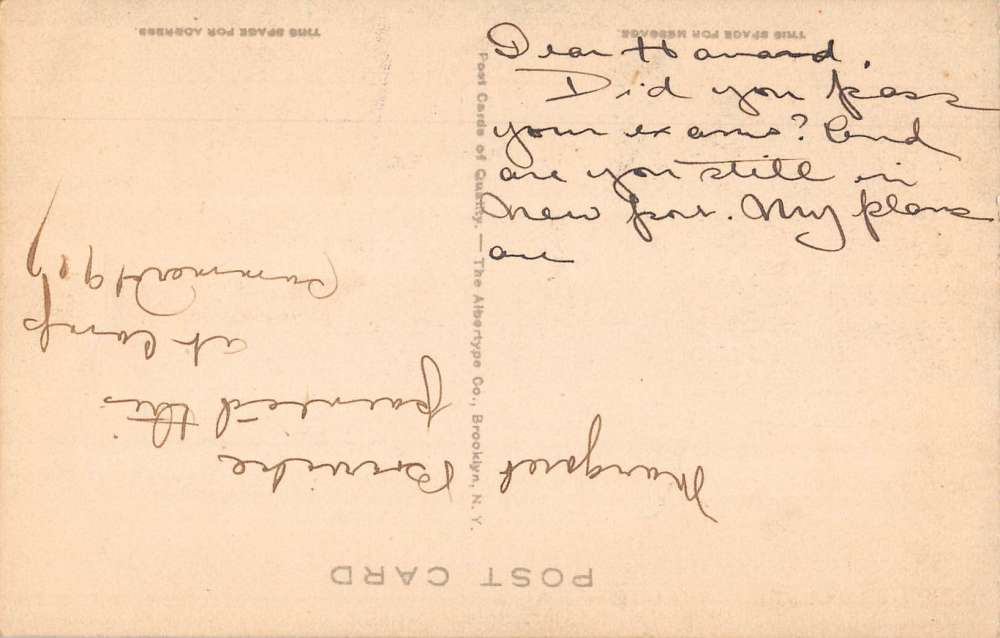 THIS SPACE FOR ADDRESS.
THIS SPACE FOR MESSAGE
Dear Howard,
Did you pass
your exams? And
are you still in
New port. My plans
are
Post Cards of Quality. — The Albertype Co., Brooklyn, N. Y.
POST CARD
Margaret
painted this
at Camp
Summer